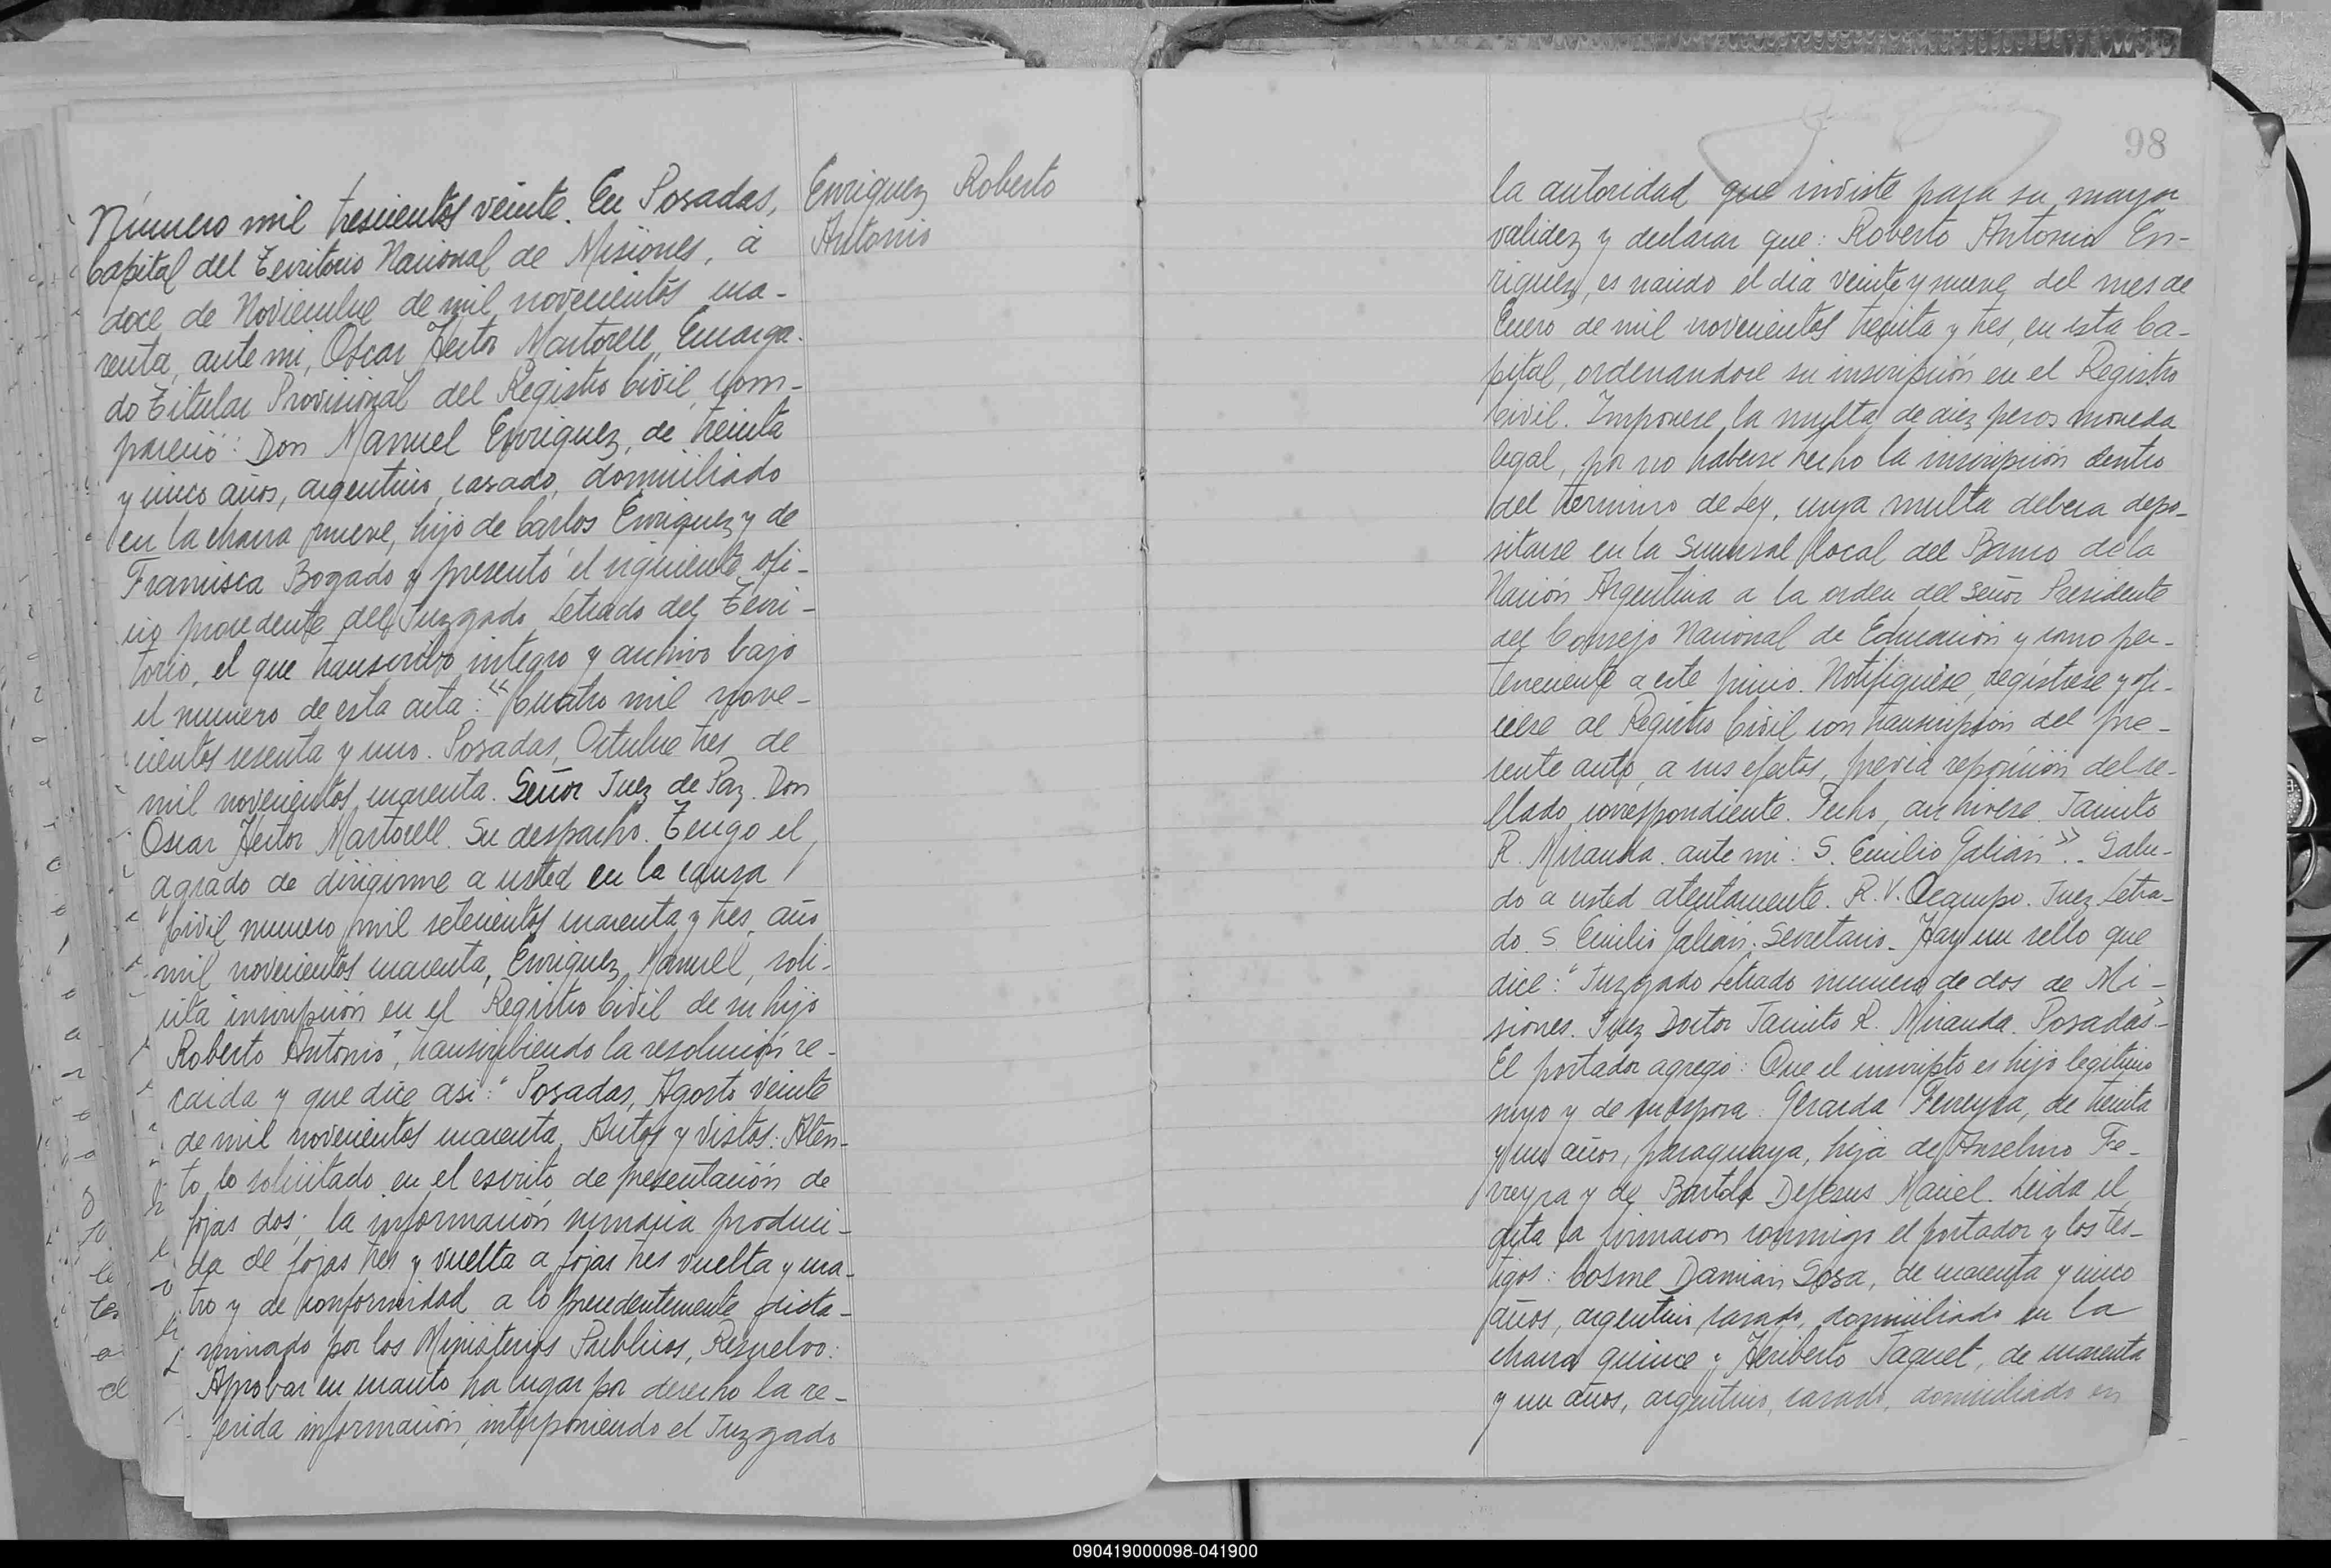 Número mil trescientos veinte. En Posadas,
Capital del Territorio Nacional de Misiones, à
doce de Noviembre de mil novecientos cua-
renta, ante mi, Oscar Hector Martorell, Encarga-
do Titular Provisional del Registro Civil, com-
pareció: Don Manuel Enriquez, de treinta
y cinco años, argentino, casado, domiciliado
en la chacra nueve, hijo de Carlos Enriquez y de
Francisca Bogado y presentó el siguiente ofi-
cio procedente del Juzgado Letrado del Terri-
torio, el que transcribo integro y archivo bajo
el numero de esta acta: "Cuatro mil nove-
cientos sesenta y uno. Posadas, Octubre tres de
mil novecientos cuarenta. Señor Juez de Paz. Don
Oscar Hector Martorell. Su despacho. Tengo el
agrado de dirigirme a usted en la causa
"Civil numero mil setecientos cuarenta y tres, año
mil novecientos cuarenta, Enriquez, Manuel, soli-
cita inscripción en el Registro Civil de su hijo
Roberto Antonio", transcribiendo la resolución re-
caida y que dice asi: "Posadas, Agosto veinte
de mil novecientos cuarenta, Autos y Vistos: Aten-
to lo solicitado en el escrito de presentación de
fojas dos; la información sumaria produci-
da de fojas tres y vuelta a fojas tres vuelta y cua-
tro y de conformidad a lo precedentemente dicta-
minado por los Ministerios Publicos, Resuelvo:
Aprobar en cuanto ha lugar por derecho la re-
ferida información, interponiendo el Juzgado
Enriquez Roberto
Antonio
98
la autoridad que inviste para su mayor
validez y declarar que: Roberto Antonio En-
riquez, es nacido el dia veinte y nueve del mes de
Enero de mil novecientos treinta y tres, en esta Ca-
pital, ordenandose su inscripción en el Registro
Civil. Imponese la multa de diez pesos moneda
legal, por no haberse hecho la inscripción dentro
del termino de Ley, cuya multa debera depo-
sitarse en la Sucursal local del Banco de la
Nación Argentina a la orden del Señor Presidente
del Consejo Nacional de Educación y como per-
teneciente a este juicio. Notifiquese, registrese y ofi-
ciese al Registro Civil con transcripción del pre-
sente auto, a sus efectos, previa reposición del se-
llado correspondiente. Fecho, archivese. Jacinto
R. Miranda. ante mi: S. Emilio Galián". Salu-
do a usted atentamente. R. V. Ocampo. Juez Letra-
do. S. Emilio Galián. Secretario. Hay un sello que
dice: "Juzgado Letrado numero de dos de Mi-
siones. Juez Doctor Jacinto R. Miranda. Posadas"-
El portador agregó: Que el inscripto es hijo legitimo
suyo y de su esposa: Gerarda Ferreyra, de treinta
y un años, paraguaya, hija de Anselmo Fe-
rreyra y de Bartola DeJesus Maciel. Leida el
acta la firmaron conmigo el portador y los tes-
tigos: Cosme Damian Sosa, de cuarenta y cinco
años, argentino, casado, domiciliado en la
chacra quince y Heriberto Jaquet, de cuarenta
y un años, argentino, casado, domiciliado en
090419000098-041900